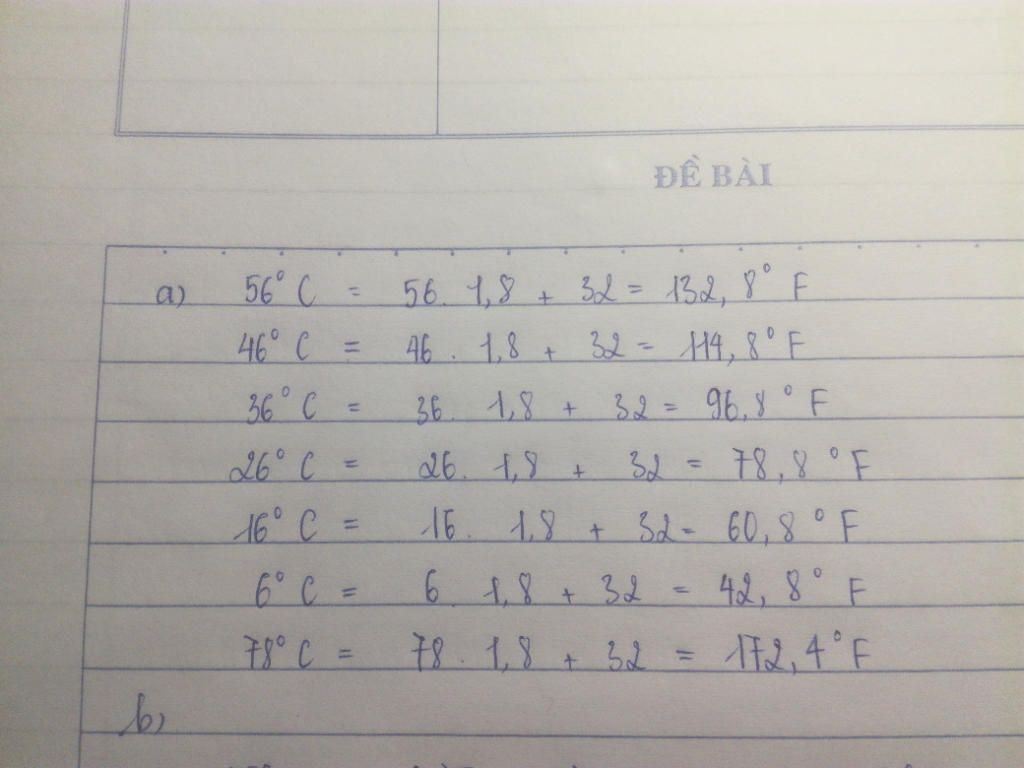 ĐỀ BÀI
a) 56° C = 56. 1,8 + 32 = 132, 8° F
46° C = 46. 1,8 + 32 = 114, 8° F
36° C = 36. 1,8 + 32 = 96,8° F
26° C = 26. 1,8 + 32 = 78,8 °F
16° C = 16. 1,8 + 32 = 60,8 ° F
6° C = 6. 1,8 + 32 = 42, 8° F
78° C = 78. 1,8 + 32 = 172,4° F
b)